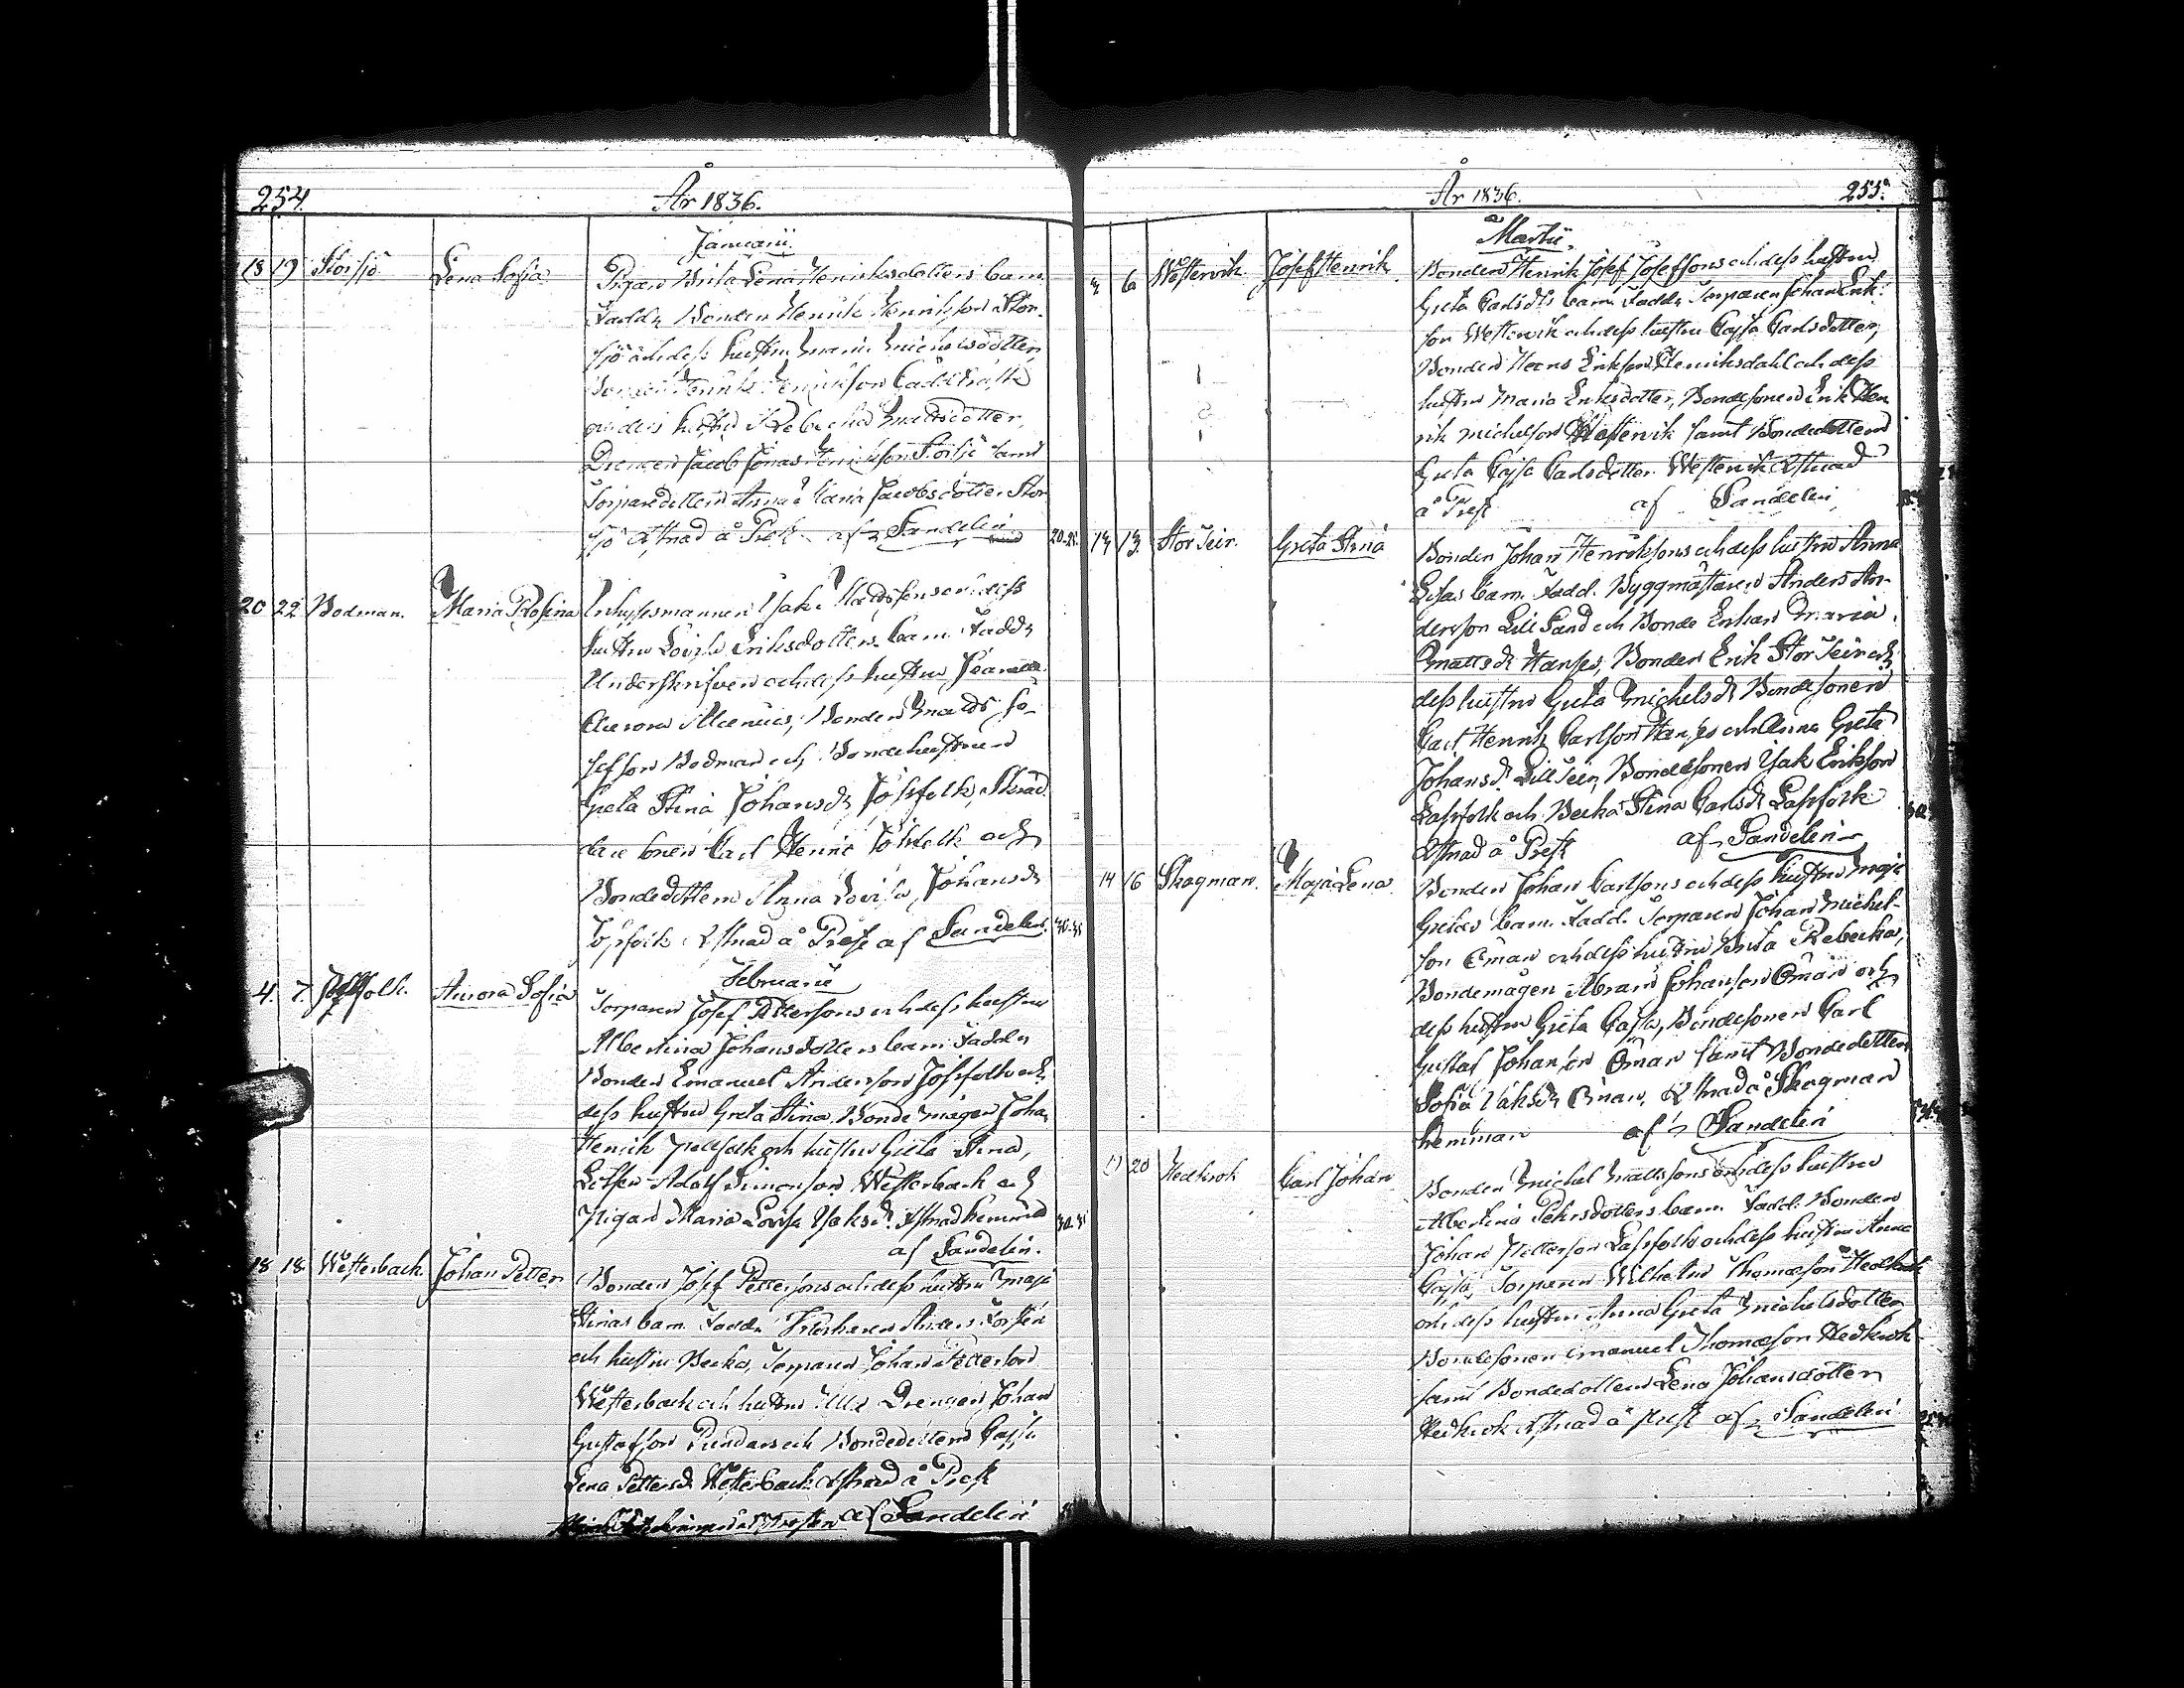 254.
År 1836.
Januarii.
18 19 Storsjö Lena Sofia Pigan Brita Lena Henriksdotters barn
Fadd. Bonden Henrik Henrikson Stor-
sjö och dess hustru Maria Michelsdotter
Henrik Henrikson
hustru Rebecka Mattsdotter,
Drengen Jacob Jonas Henrikson Storsjö samt
Torparedottern Anna Maria Jacobsdotter Stor
sjö Östnad å Prest. af Sandelin
20-25.
20 22 Bodman. Maria Rosina Inhysesmannen Isak och dess
hustru Lovisa Eriksdotters barn. Fadd.
Underskrifven och dess hustru
Aurora Alcenius, Bonden Matts Jo-
sefson Bodman och Bondehustrun
Greta Stina Johansd. Jössfolk, Skräd
dare sonen Carl Henric Jössfolk och
Bondedottern Anna Lovisa Johansd.
Jössfolk Östnad å Prest af Sandelin.
30-35
Februarii
4. 7. folk. Aurora Sofia Torparen Josef Pettersons och dess hustru
Albertina Johansdotters barn Fadd.
Bonden Emanuel Anderson Jössfolk och
dess hustru Greta Stina. Bonde mågen Joha
Henrik folk och hustru Greta Stina,
Adolf Simonson Westerback och
Pigan Maria Lovisa Isaksd. Östnad hemma
30-35
af Sandelin.
18 18. Westerback. Johan Petter Bonden Josef Pettersons och dess hustru Maja
Stinas barn. Fadd. Anders
och hustru Becka, Torparen Johan Petterson
Westerback och hustru Ulla Drengen Johan
Gustafson Pundars och Bondedottern Cajsa
Lena Pettersd. Westerback Östnad å Prest
af Sandelin
År 1836.
255.
Martii.
6 Westervik. Josef Henrik Bonden Henrik Josef Josefsons och dess hustru
Greta Carlsdts barn. Fadd. Torparen Johan Erik-
son Westervik och dess hustru Cajsa Carlsdotter,
Bonden Hans Erikson Henriksdahl och dess
hustru Maria Eriksdotter, Bondesonen Erik Hen
rik Michelson Westervik samt Bondedottern
Greta Cajsa Carlsdotter Westervik Östnad
å Prest af Sandelin,
13 13. Stor Teir. Greta Stina Bonden Johan Henriksons och dess hustru Anna
Lisas barn. Fadd. Byggmästaren Anders An-
derson Lill Sand och Bonde Enkan Maria
Mattsd. Hanses, Bonden Erik Stor Teir och
dess hustru Greta Michelsd. Bondesonen
Carl Henrik Carlson Hanses och Anna Greta
Johansd. Lill Teir, Bondesonen Isak Erikson
Lassfolk och Becka Stina Carlsd. Lassfolk
Östnad å Prest af Sandelin
14 16 Skagman. Maja Lena Bonden Johan Carlsons och dess hustru Maja
Gretas barn. Fadd. Torparen Johan Michel-
son Öman och dess hustru Brita Rebecka,
Bondemågen Abram Johanson Öman och
dess hustru Greta Cajsa, Bondesonen Carl
Gustaf Johanson Öman samt Bondedottern
Sofia Isaksd. Öman, Östnad å Skagman
hemman af Sandelin
20 Hedkrok Carl Johan Bonden Michel Mattssons och dess hustru
Albertina Pehrsdotters barn. Fadd. Bonden
Johan Petterson Lassfolk och dess hustru Anna
Cajsa, Torparen Wilhelm Thomæson Hedkrok
och dess hustru Anna Greta Michelsdotter,
Bondesonen Emanuel Thomæson Hedkrok
samt Bondedottern Lena Johansdotter
Hedkrok Östnad å Prest af Sandelin